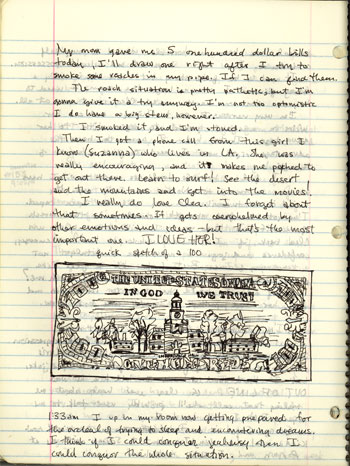 My mom gave me 5 one hundred dollar bills
today, I'll draw one right after I try to
smoke some roaches in my pipe. If I can find them.
The roach situation is pretty pathetic, but I'm
gonna give it a try anyway. I'm not too optimistic
I do have a big stem, however.
I smoked it, and I'm stoned.
Then I got a phone call from this girl I
know (Suzanna) who lives in LA. She was
really encouraging, and it makes me psyched to
get out there. learn to surf! See the desert
and the mountains and get into the movies!
I really do love Clea. I forget about
that sometimes. It gets overwhelmed by
other emotions and ideas - but that's the most
important one. I LOVE HER!
quick sketch of a 100
THE UNITED STATES OF AMERICA
IN GOD WE TRUST
100
100
1:33 am I up in my room now getting prepared for
the ordeal of trying to sleep and encountering dreams.
I think if I could conquer jealousy then I
could conquer the whole situation.